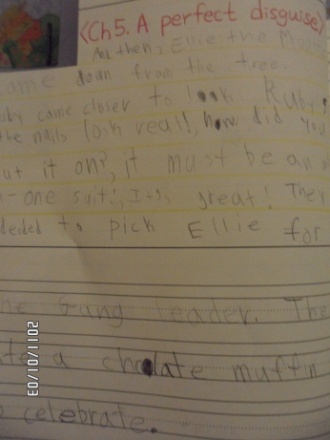 <Ch5. A perfect disguise>
And then, Ellie the
came down from the tree.
Ruby came closer to look. Ruby:
the nails look real!, how did you
put it on?, it must be an
-one suit!, It's great! They
decided to pick Ellie for
the Gang leader. The
ate a chcolate muffin
to celebrate.
03/01/2011